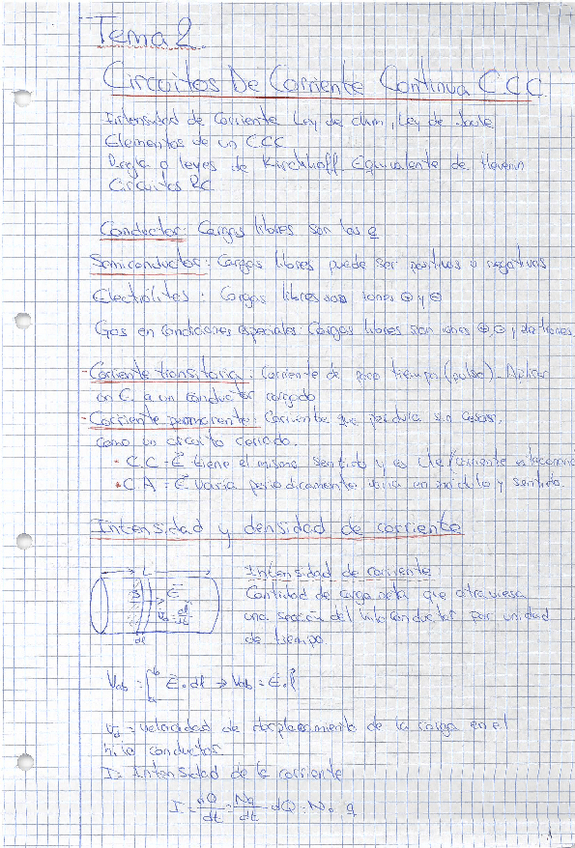 Tema 2
Circuitos De Corriente Continua C.C.C.
Intensidad de Corriente Ley de Ohm, Ley de Joule
Elementos de un C.C.C
Regla o leyes de Kirchhoff Equivalente de Thevenin
Circuitos RC
Conductor: Cargas libres son los e
Semiconductor: Cargas libres puede ser positivas o negativas
Electrólitos: Cargas libres son iones ⊕ y ⊖
Gas en condiciones especiales: Cargas libres son iones ⊕,⊖ y electrones
-Corriente transitoria: Corriente de poco tiempo (pulso). Aplicar
un E a un conductor cargado
-Corriente permanente: Corriente que perdura sin cesar,
como un circuito cerrado.
• C.C = E tiene el mismo sentido y es cte
• C A = E varia periodicamente varia en módulo y sentido.
Intensidad y densidad de corriente
L
S
E
dl
Intensidad de corriente
Cantidad de carga neta que atraviesa
una sección del hilo conductor por unidad
de tiempo.
Vab = ∫ E · dl → Vab = E · l
vd = velocidad de desplazamiento de la carga en el
hilo conductor
I = Intensidad de la corriente
I = dQ/dt = Nq/dt dQ = N · q